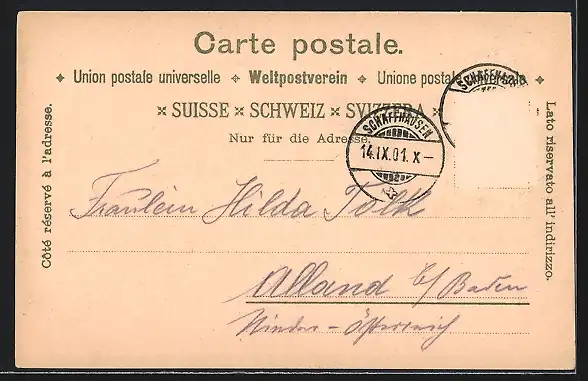 Carte postale.
✦ Union postale universelle ✦ Weltpostverein ✦ Unione postale universale ✦
× SUISSE × SCHWEIZ × SVIZZERA ×
Nur für die Adresse.
Côté réservé à l'adresse.
Lato riservato all' indirizzo.
SCHAFFHAUSEN
14.IX.01.X–
SCHAFFHAUSEN
Fräulein Hilda Tolk
Alland b/ Baden
Nieder-Österreich